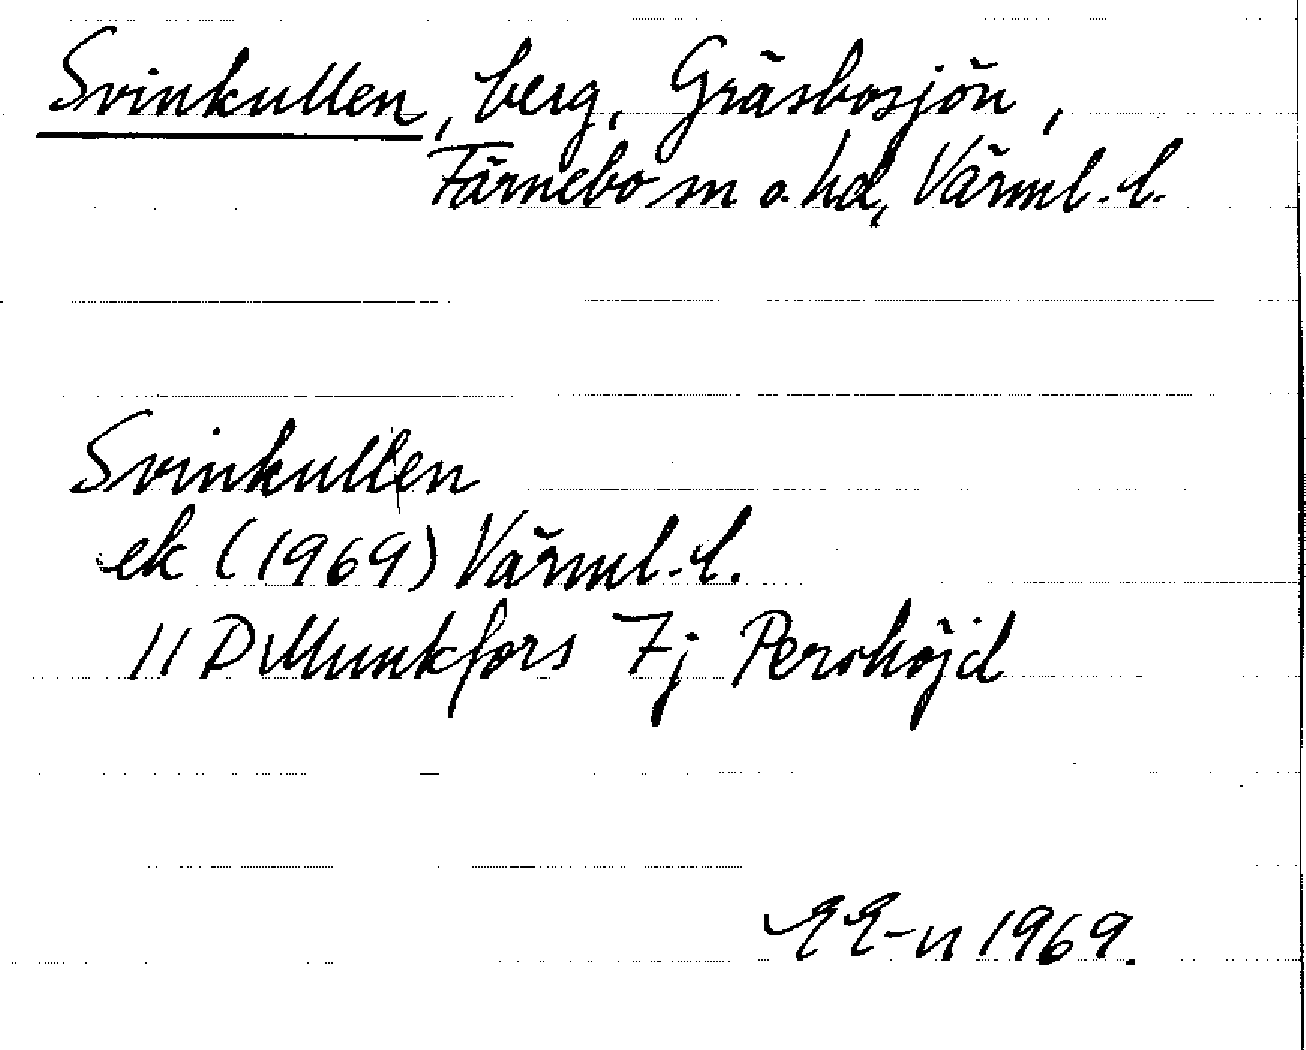 Svinkullen, berg, Gräsbosjön,
Färnebo sn o. hd, Värml. l.
Svinkullen
ek (1969) Värml. l.
11 D Munkfors 7j Pershöjd
EE-n 1969.